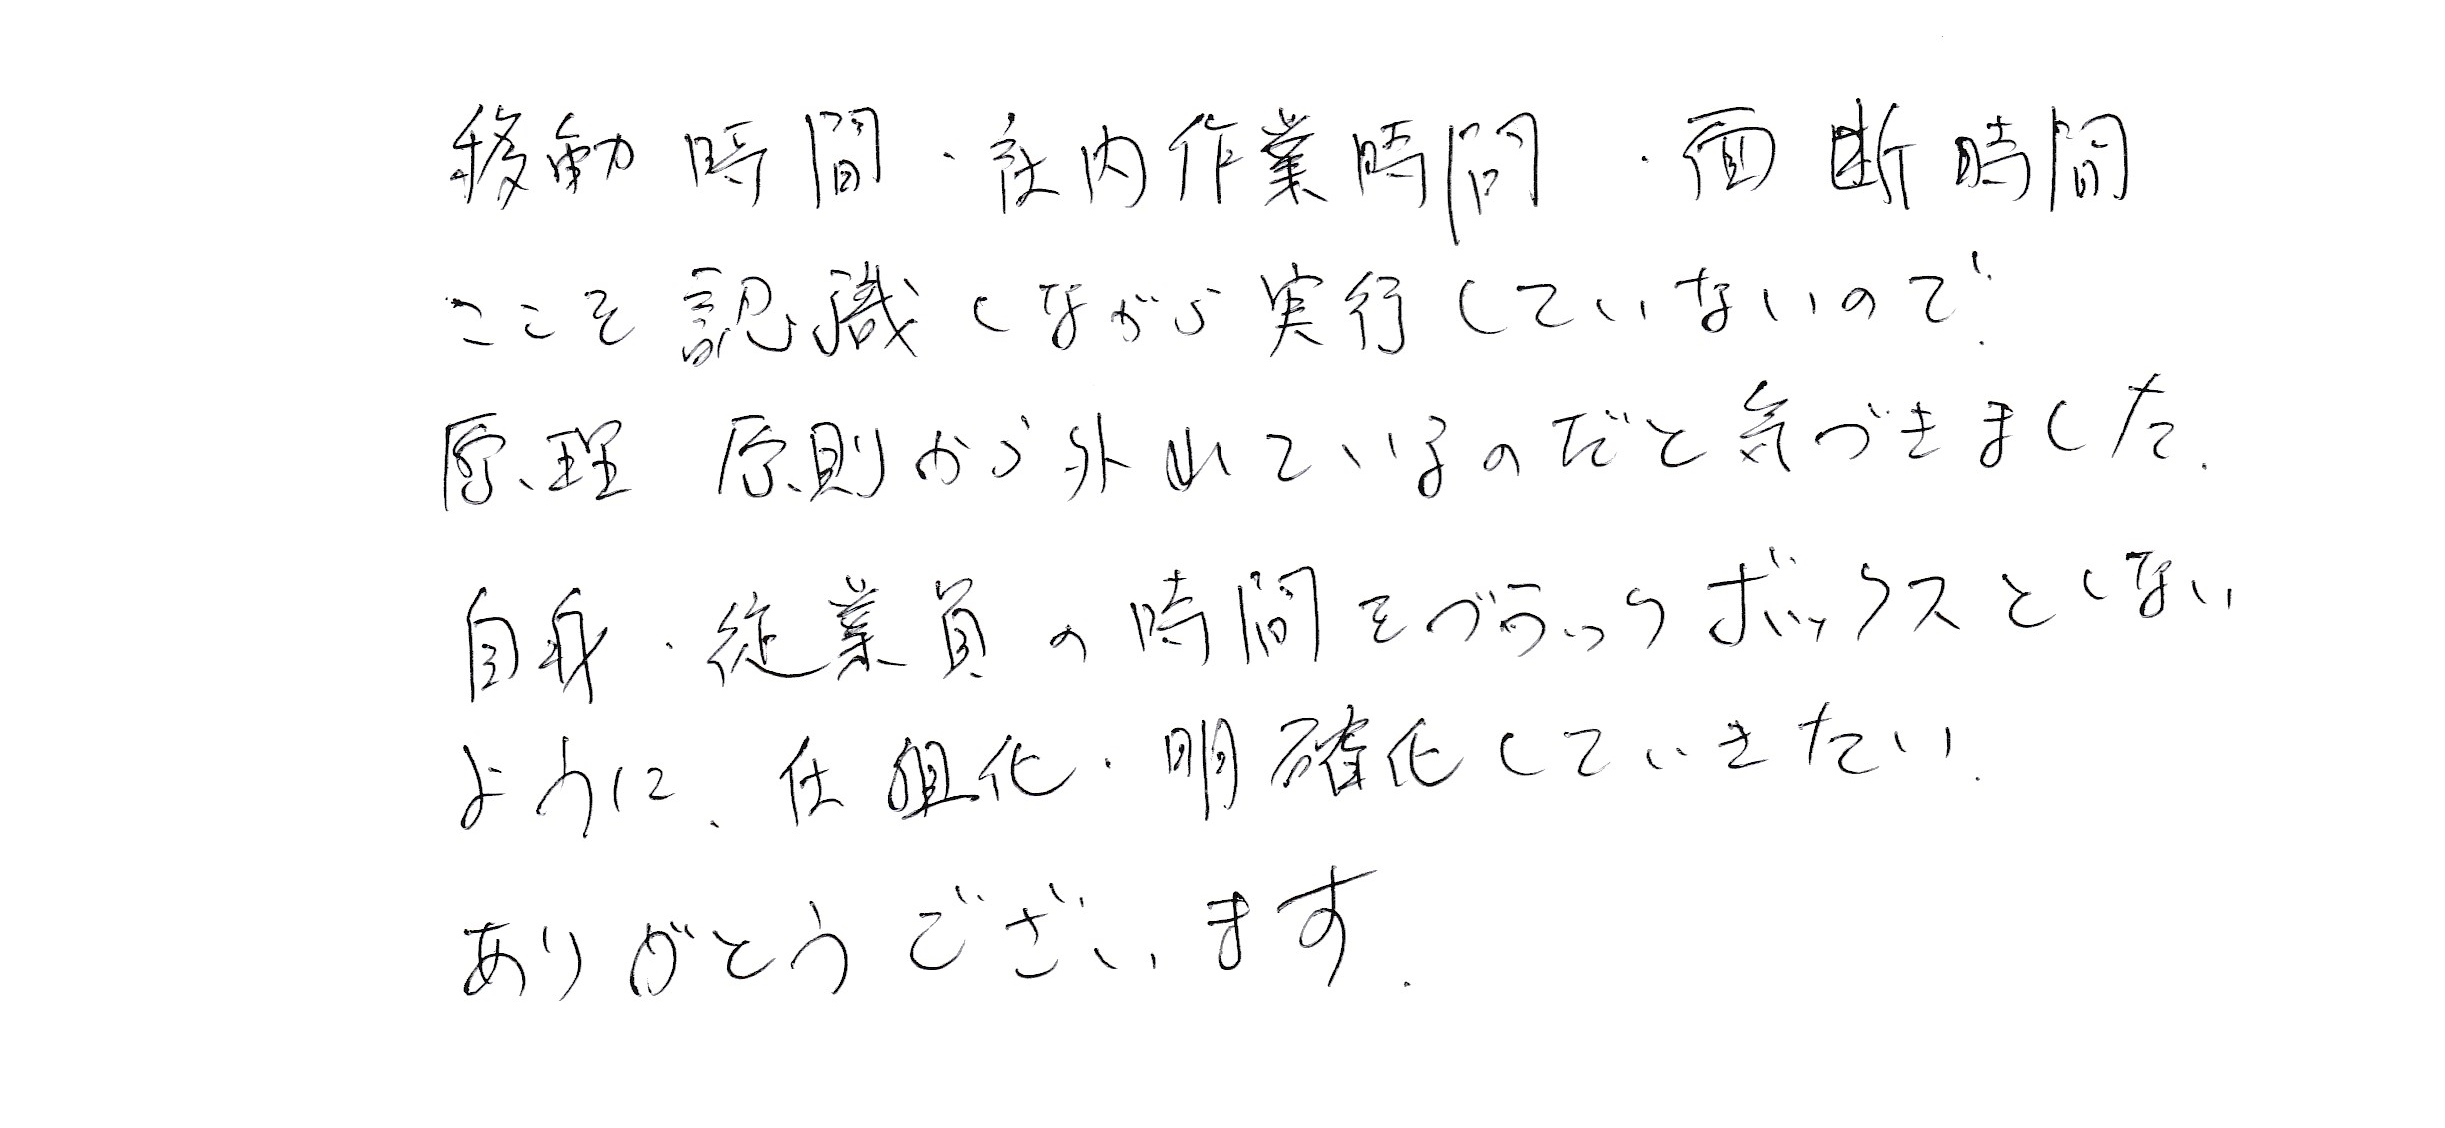 移動時間・社内作業時間・面断時間
ここそ認識しながら実行していないので
原理原則から外れているのだと気づきました。
自身・従業員の時間をブラックボックスとしない
ように、仕組化・明確化していきたい。
ありがとうございます。